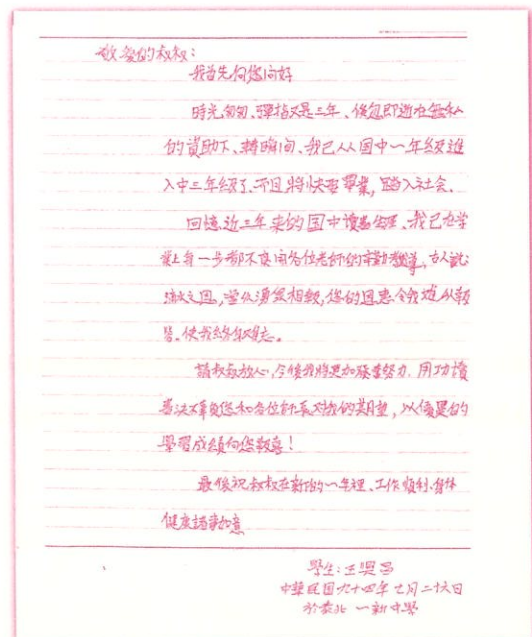 敬愛的叔叔:
我首先向您问好
時光匆匆、彈指又是三年、倏忽即逝在無私
的資助下、轉瞬间、我已从国中一年級進
入中三年級了、而且將快要畢業,踏入社会。
回憶近三年来的国中讀書生涯、我已在学
業上每一步都不
各位老師的辛勤教導,古人說:
滴水之恩,當以湧泉相報,您的恩惠令我
使我終身難忘。
請叔叔放心,今後我將更加發奮努力、用功讀
書決不辜負您和各位師長对我的期望,以優異的
學習成績向您報喜!
最後祝叔叔在新的一年裡、工作順利、身体
健康諸事如意
學生:王興
中華民国九十四年七月二十六日
於泰北一新中學